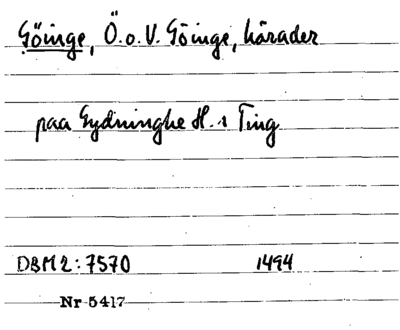 Göinge, Ö. o. V. Göinge, härader
paa Gydninghe H.s Ting
DBM 2:7570 1494
Nr 5417